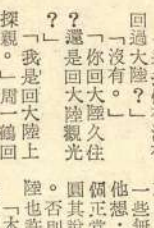 回過大陸？」
「沒有。」
「你回大陸久住
？還是回大陸觀光
？」
「我是回大陸上
探親。」周一鶴回
一些無
他想，
個正常
圓其說
。否則
陸也許
「大